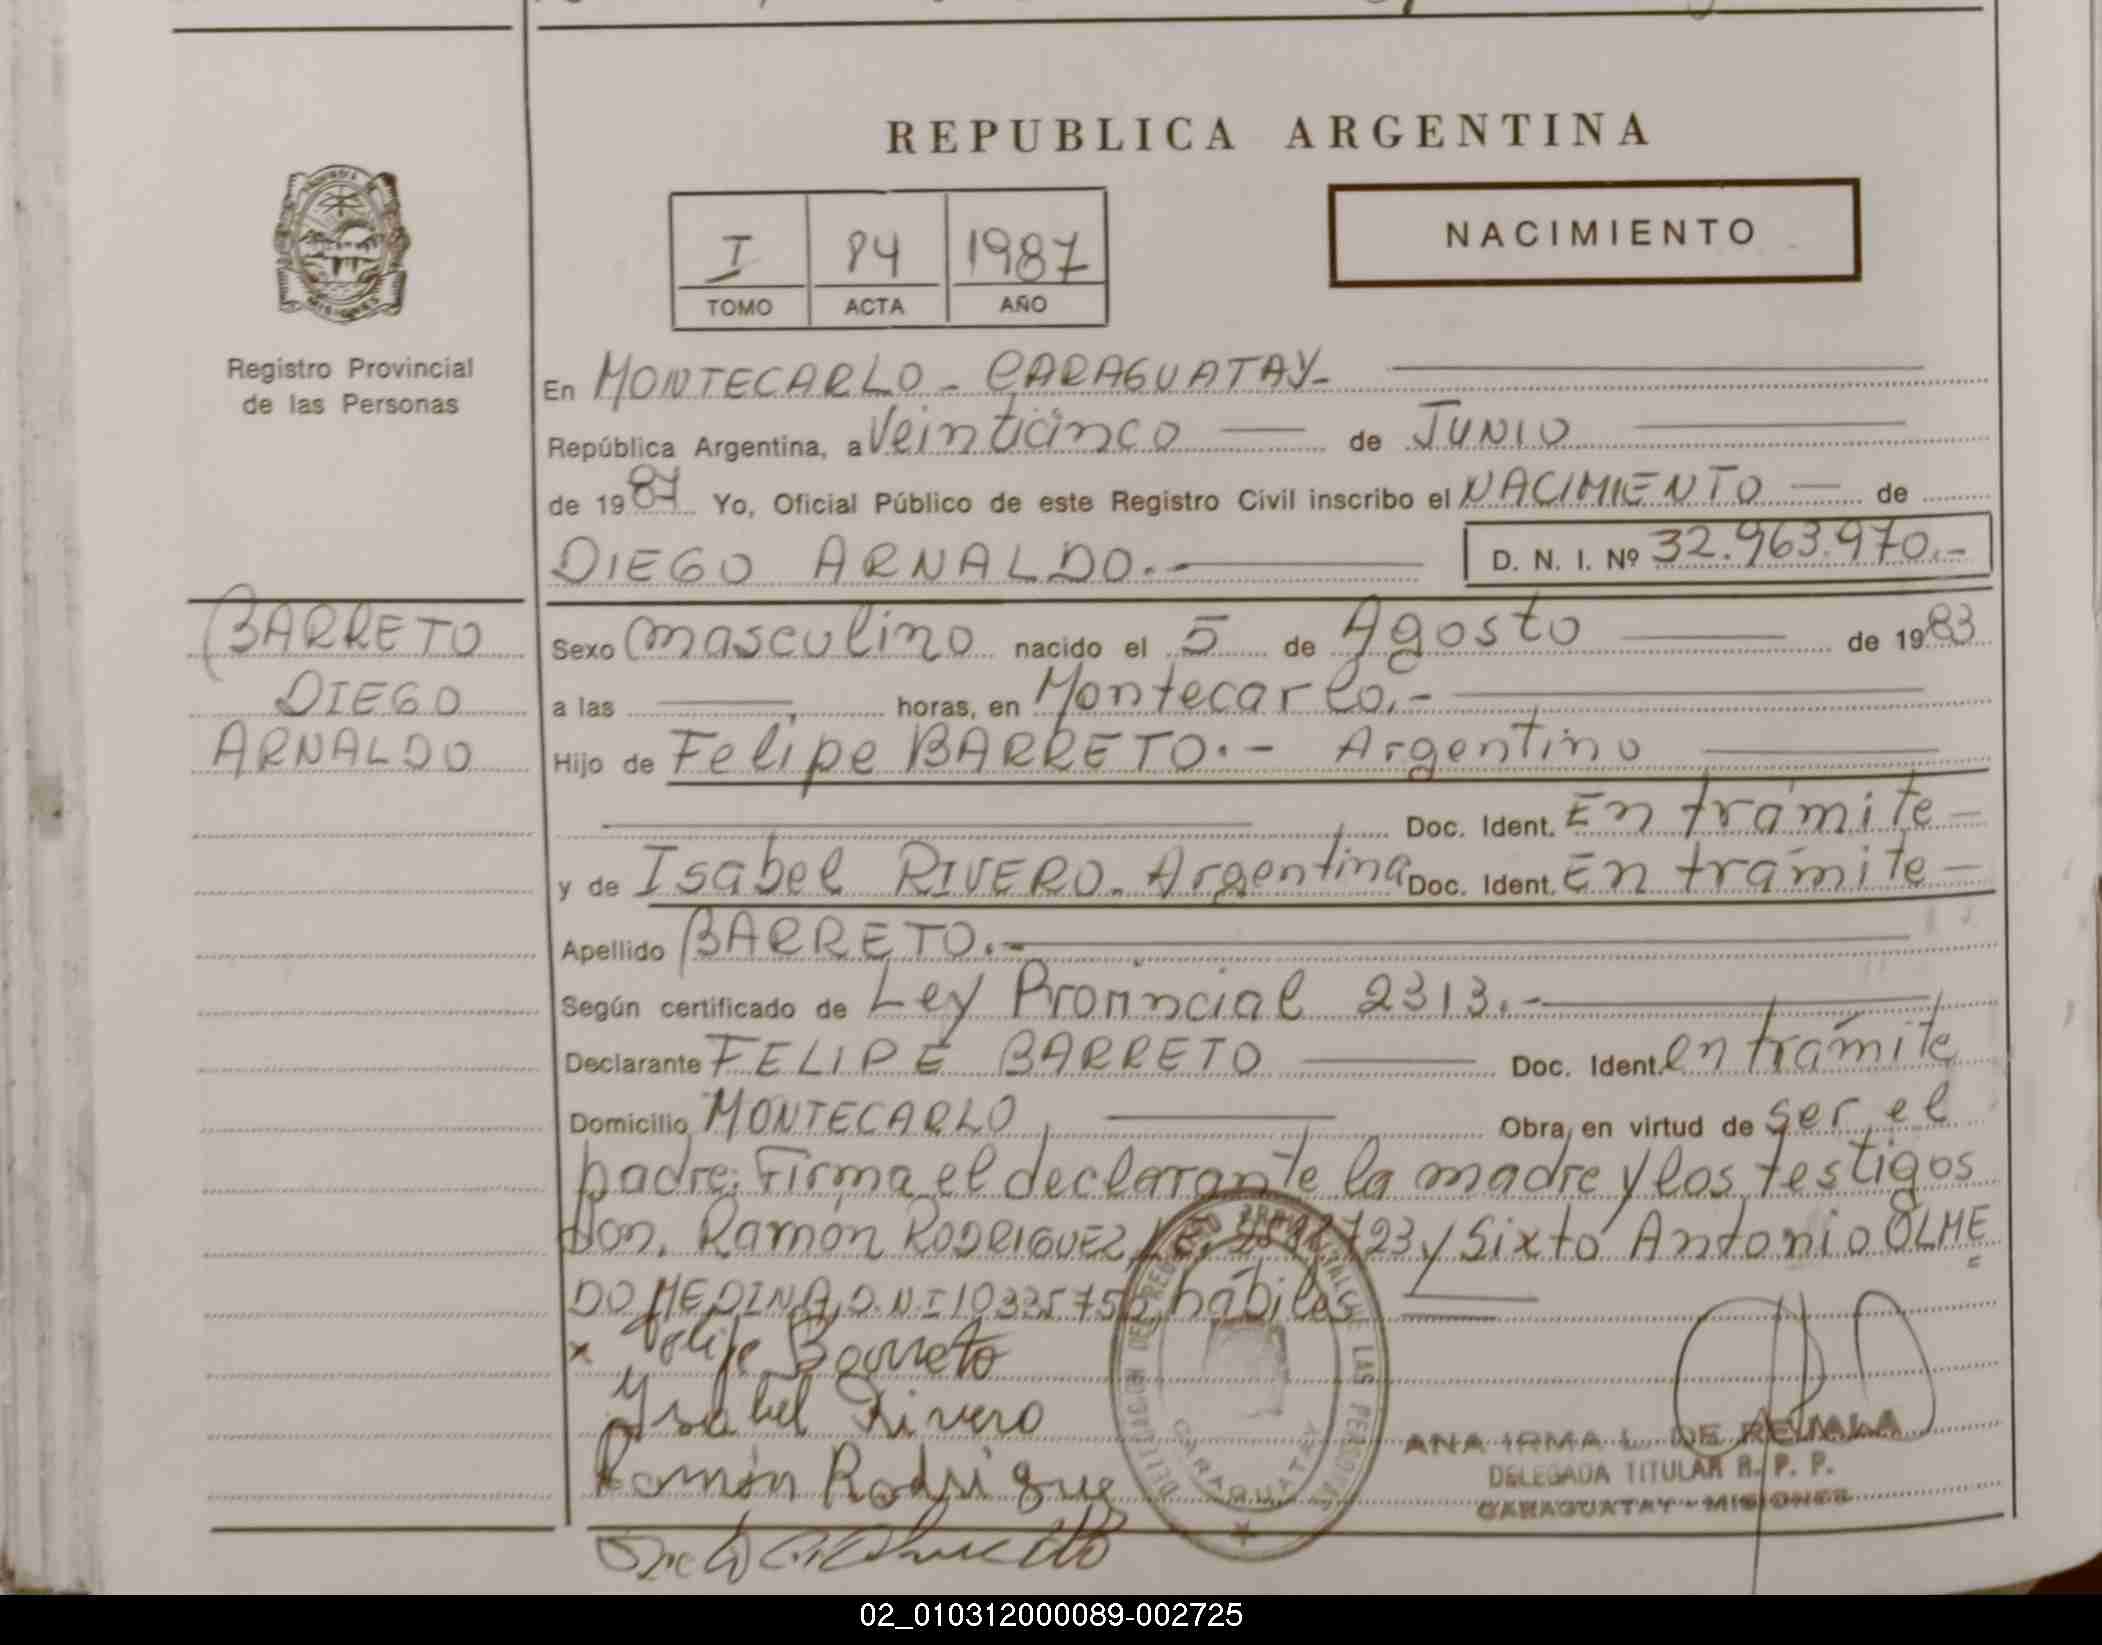 REPUBLICA ARGENTINA
NACIMIENTO
I 84 1987
TOMO ACTA AÑO
Registro Provincial
de las Personas
En MONTECARLO - CARAGUATAY-
República Argentina, a Veinticinco de JUNIO
de 1987 Yo, Oficial Público de este Registro Civil inscribo el NACIMIENTO de
DIEGO ARNALDO.- D. N. I. Nº 32.963.970.-
BARRETO
DIEGO
ARNALDO
Sexo masculino nacido el 5 de Agosto de 1983
a las horas, en Montecarlo.-
Hijo de Felipe BARRETO.- Argentino
Doc. Ident. En trámite -
y de Isabel RIVERO. Argentina Doc. Ident. En trámite -
Apellido BARRETO.-
Según certificado de Ley Provincial 2313.-
Declarante FELIPE BARRETO Doc. Ident. En trámite
Domicilio MONTECARLO, Obra, en virtud de ser el
padre. Firma el declarante la madre y los testigos
Don. Ramón RODRIGUEZ y Sixto Antonio OLME
DO MEDINA D.N.I 10335756 hábiles
x Felipe Barreto
Ysabel Rivero
Ramón Rodriguez
DELEGACION DEL REGISTRO PROVINCIAL DE LAS PERSONAS
CARAGUATAY
ANA IRMA L. DE
DELEGADA TITULAR R. P. P.
CARAGUATAY - MISIONES
02_010312000089-002725